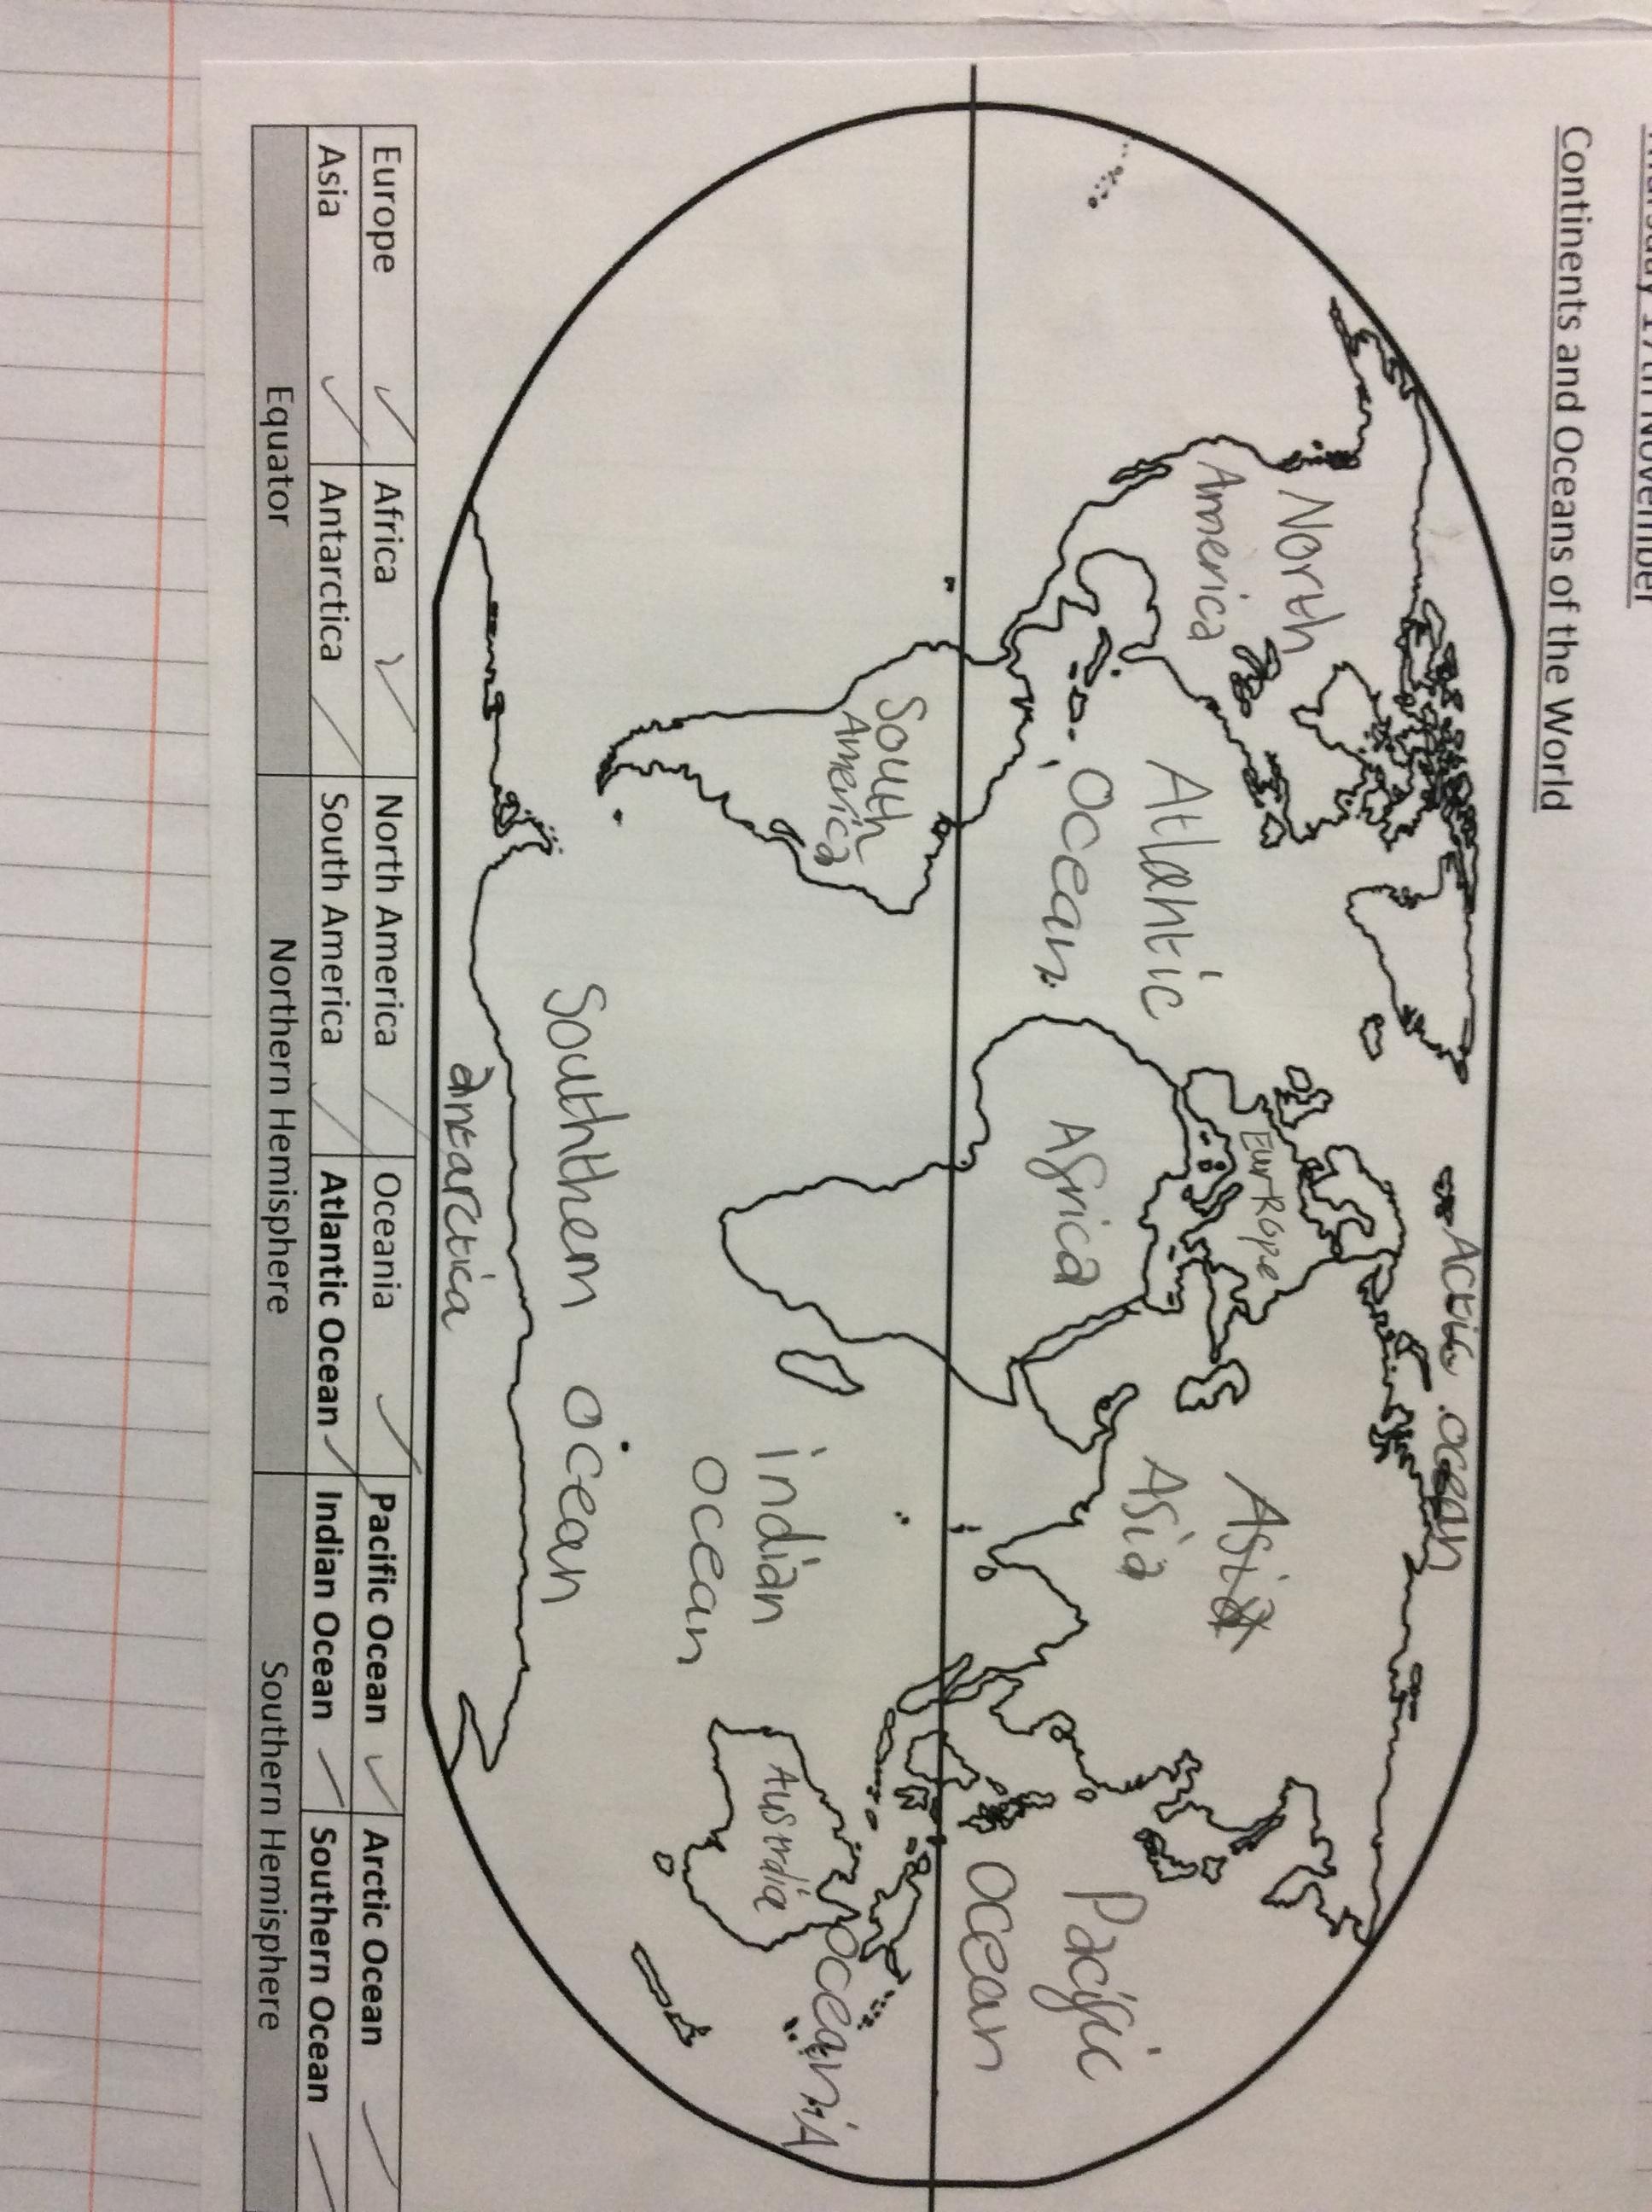 Thursday 17th November
Continents and Oceans of the World
Arctic ocean
North
America
Atlantic
Ocean
EurRope
Africa
Asia
Asia
Pacific
ocean
South
America
indian
ocean
Australia
oceaniA
Souththern ocean
antarctica
Europe Africa North America Oceania Pacific Ocean Arctic Ocean
Asia Antarctica South America Atlantic Ocean Indian Ocean Southern Ocean
Equator Northern Hemisphere Southern Hemisphere